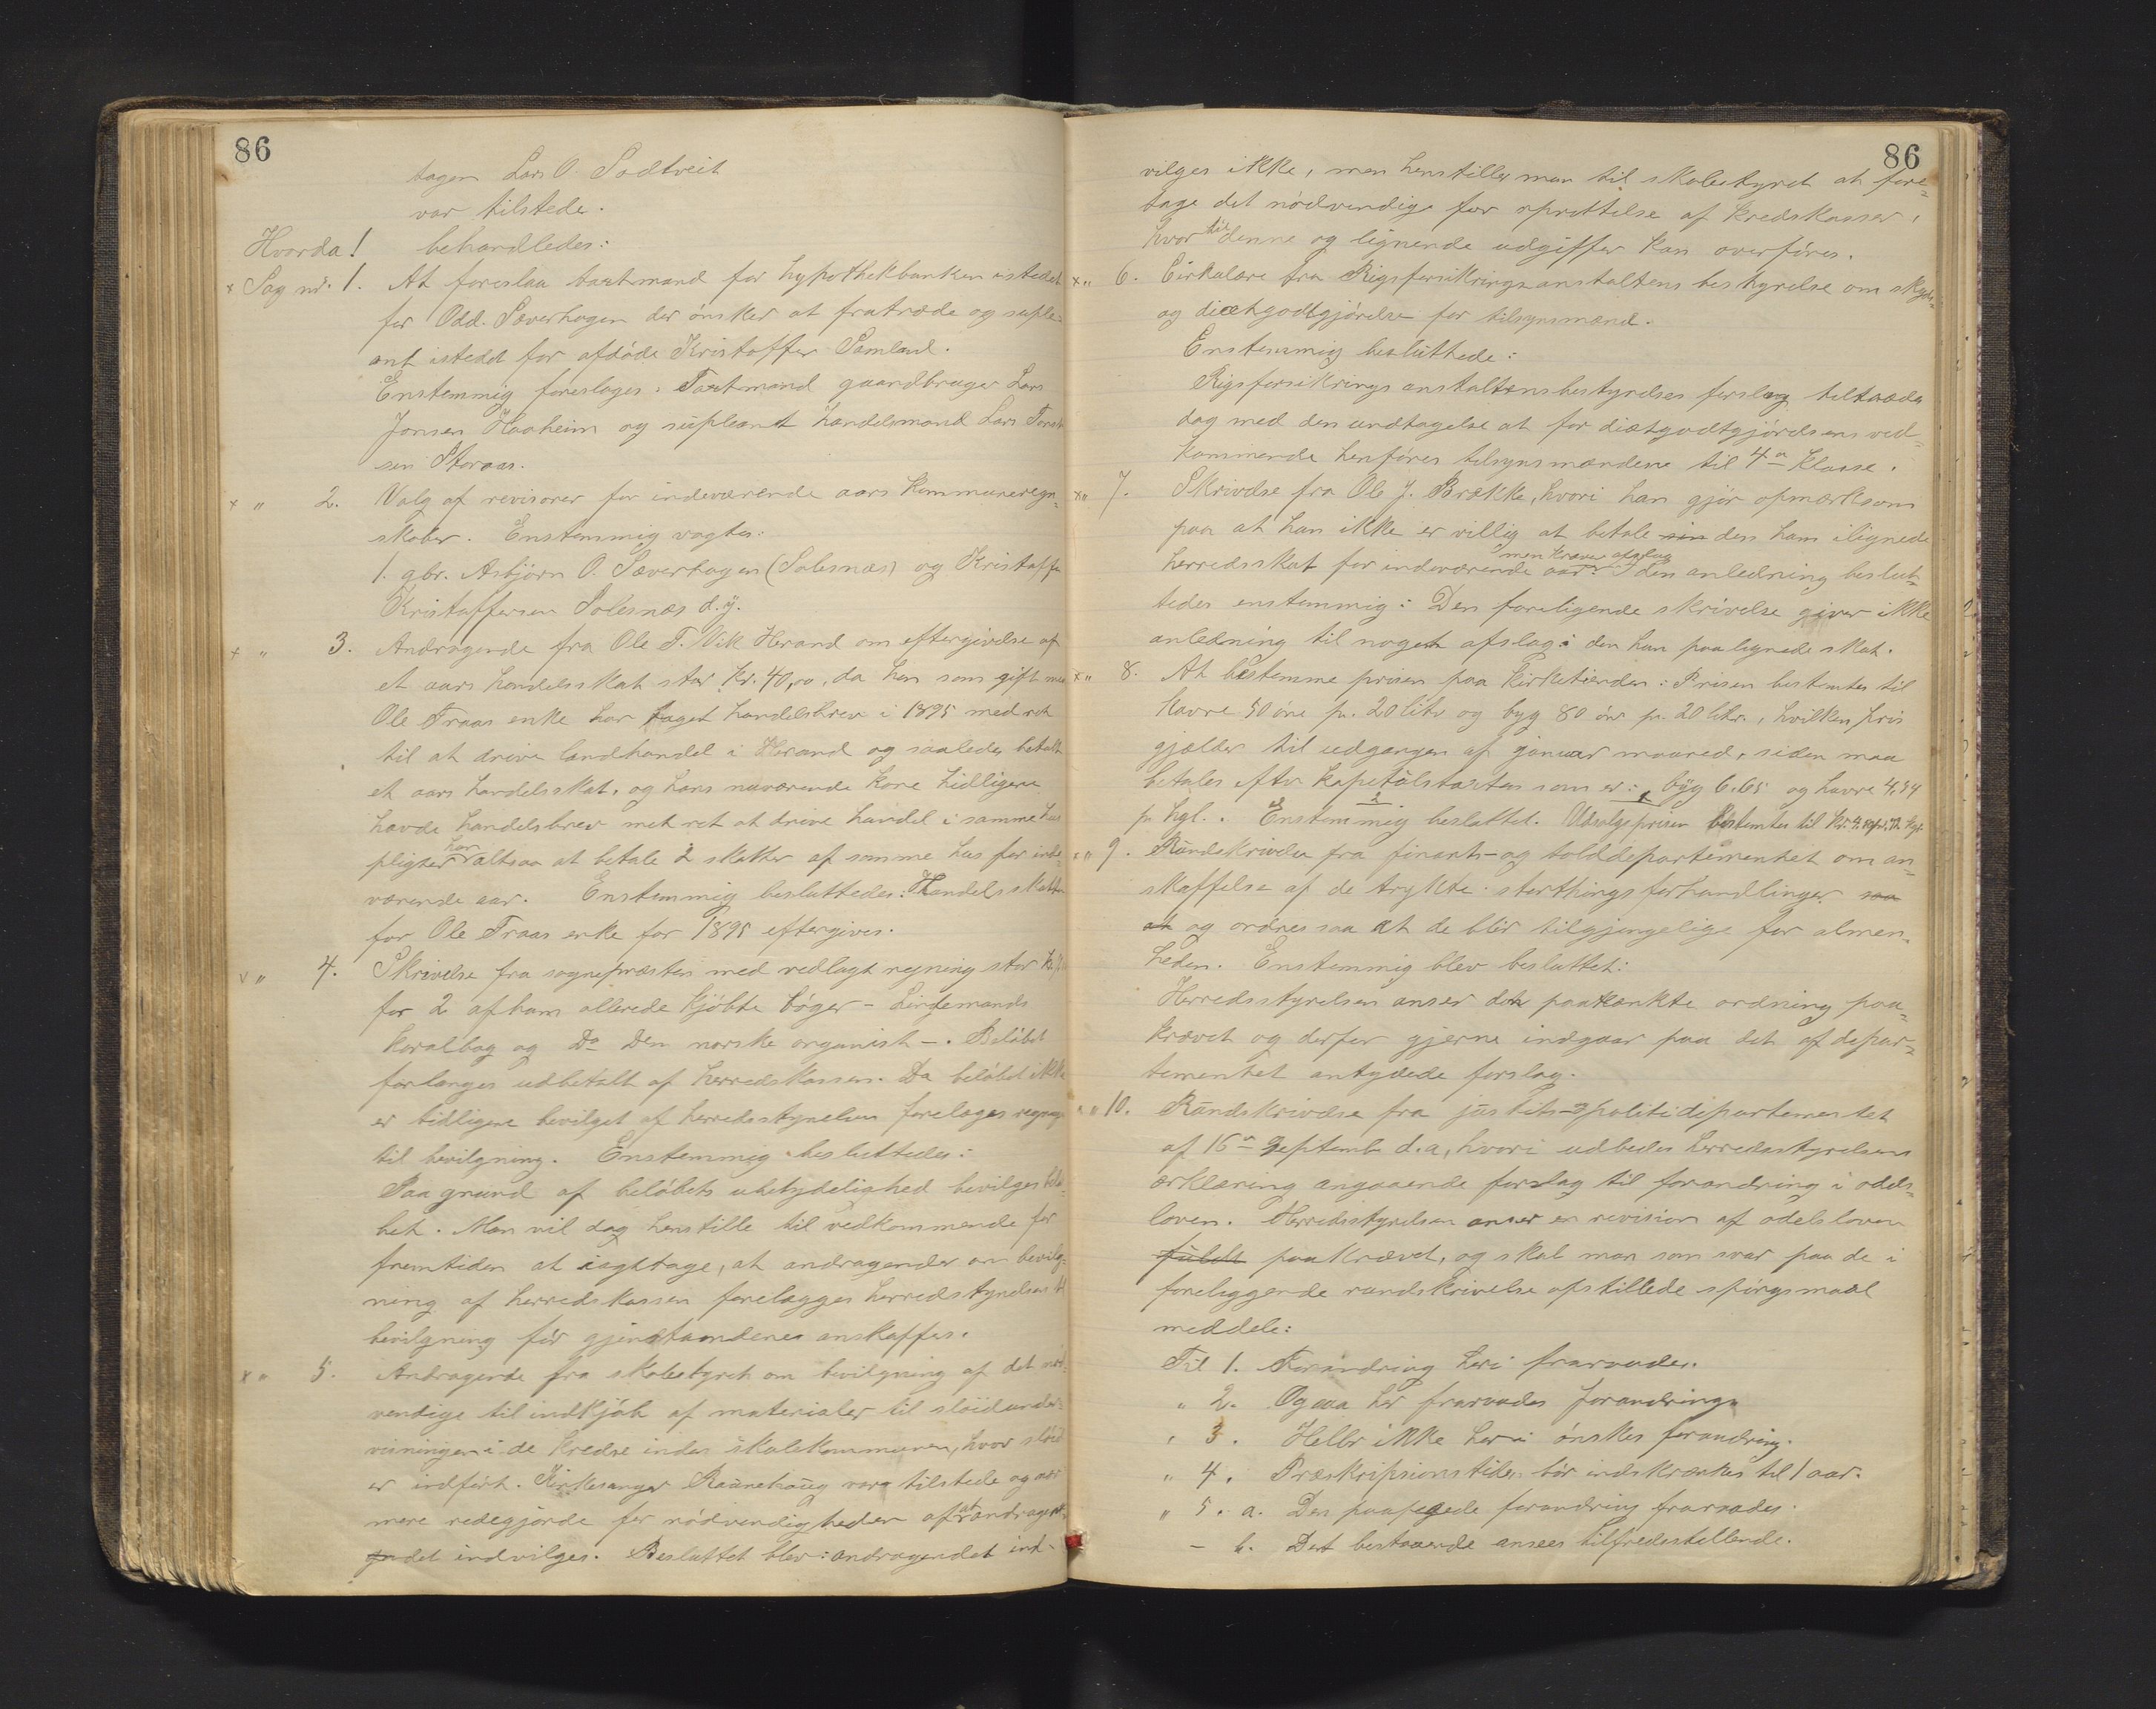 86
tagen Lars O. Sodtveit
var tilstede.
Hvorda! behandledes:
x Sag nr. 1. At foreslaa taxtmand for hypothekbanken istedet
for Odd. Sæverhagen der ønsker at fratræde og suple-
ant istedet for afdøde Kristoffer Samland.
Enstemmig foresloges: Taxtmand gaardbruger Lars
Jonsen Haaheim og supleant handelsmand Lars Torst
sen Storaas.
x " 2. Valg af revisorer for indeværende aars kommuneregn-
skaber. Enstemmig valgtes:
1. gbr. Asbjørn O. Sæverhagen (Solesnæs) og Kristoffer
Kristoffersen Solesnæs d.y.
x " 3. Andragende fra Ole T. Vik Herand om eftergivelse af
et aars handelsskat stor kr. 40,00, da han som gift med
Ole Traas enke har taget handelsbrev i 1895 med ret
til at drive landhandel i Herand og saaledes betalt
et aars handelsskat, og hans nuværende kone tidligere
havde handelsbrev met ret at drive handel i samme hus
pligter har altsaa at betale 2 skatter af samme hus for inde-
værende aar. Enstemmig besluttedes: Handelsskatten
for Ole Traas enke for 1895 eftergives.
v " 4. Skrivelse fra sognepræsten med vedlagt regning stor kr.
for 2 af ham allerede kjøbte bøger – Lindemands
koralbog og Do Den norske organist –. Beløbet
forlanges udbetalt af herredskassen. Da beløbet ikke
er tidligere bevilget af herredsstyrelsen forelæges regningen
til bevilgning. Enstemmig besluttedes:
Paa grund af beløbets ubetydelighed bevilges belø-
bet. Man vil dog henstille til vedkommende for
fremtiden at iagttage, at andragender om bevilg-
ning af herredskassen forelægges herredstyrelsen til
bevilgning før gjenstandenes anskaffes.
x " 5. Andragende fra skolestyret om bevilgning af det nød-
vendige til indkjøb af materialer til sløidunder-
visningen i de kredse inden skolekommunen, hvor sløid
er indført. Kirkesanger Raunehaug var tilstede og nær
mere redegjorde for nødvendigheden af at andragend
det indvilges. Besluttet blev: andragendet ind-
86
vilges ikke, men henstilles man til skolestyret at fore-
tage det nødvendige for oprettelse af kredskasser,
hvor til denne og lignende udgifter kan overføres.
x " 6. Cirkulære fra Rigsforsikringsanstaltens bestyrelse om skyds-
og diætgodtgjørelse for tilsynsmænd.
Enstemmig besluttede:
Rigsforsikringsanstaltens bestyrelses forslag tiltrædes
dog med den undtagelse at for diætgodtgjørelsens ved-
kommende henføres tilsynsmændene til 4de klasse.
x " 7. Skrivelse fra Ole J. Brække, hvori han gjør opmærksom
paa at han ikke er villig at betale sin den ham ilignede
men kræver afslag
herredsskat for indeværende aar: I den anledning beslut-
tedes enstemmig: Den foreligende skrivelse giver ikke
anledning til nogen afslag i den han paalignede skat.
x " 8. At bestemme prisen paa kirketienden: Prisen bestemtes til
havre 50 øre pr. 20 liter og byg 80 øre pr. 20 liter, hvilken pris
gjælder til udgangen af januar maaned, siden maa
betales efter kapetulstaxten som er: byg 6.65 og havre 4.34
pr. hgl. Enstemmig besluttet. Udsalgsprisen bestemtes til Kr. 4. pr. hgl.
x " 9. Rundskrivelse fra finants- og tolddepartementet om an-
skaffelse af de trykte storthingsforhandlinger saa
at og ordnes saa at de blir tilgjengelige for almen-
heden. Enstemmig blev besluttet:
Herredsstyrelsen anser den paatænkte ordning paa-
krævet og derfor gjerne indgaar paa det af depar-
tementet antydede forslag.
" 10. Rundskrivelse fra justits- og politidepartementet
af 16de September d.a., hvori udbedes herredsstyrelsens
erklæring angaaende forslag til forandring i odels-
loven. Herredsstyrelsen anser en revision af odelsloven
fuldt paakrævet, og skal man som svar paa de i
foreliggende rundskrivelse opstillede spørgsmaal
meddele:
Til 1. Forandring heri fraraades.
" 2. Ogsaa her fraraades forandring.
" 3. Heller ikke heri ønskes forandring.
" 4. Præskripsionstiden bør indskrænkes til 1 aar.
" 5. a. Den paapegede forandring fraraades.
– b. Det bestaaende ansees tilfredsstillende.